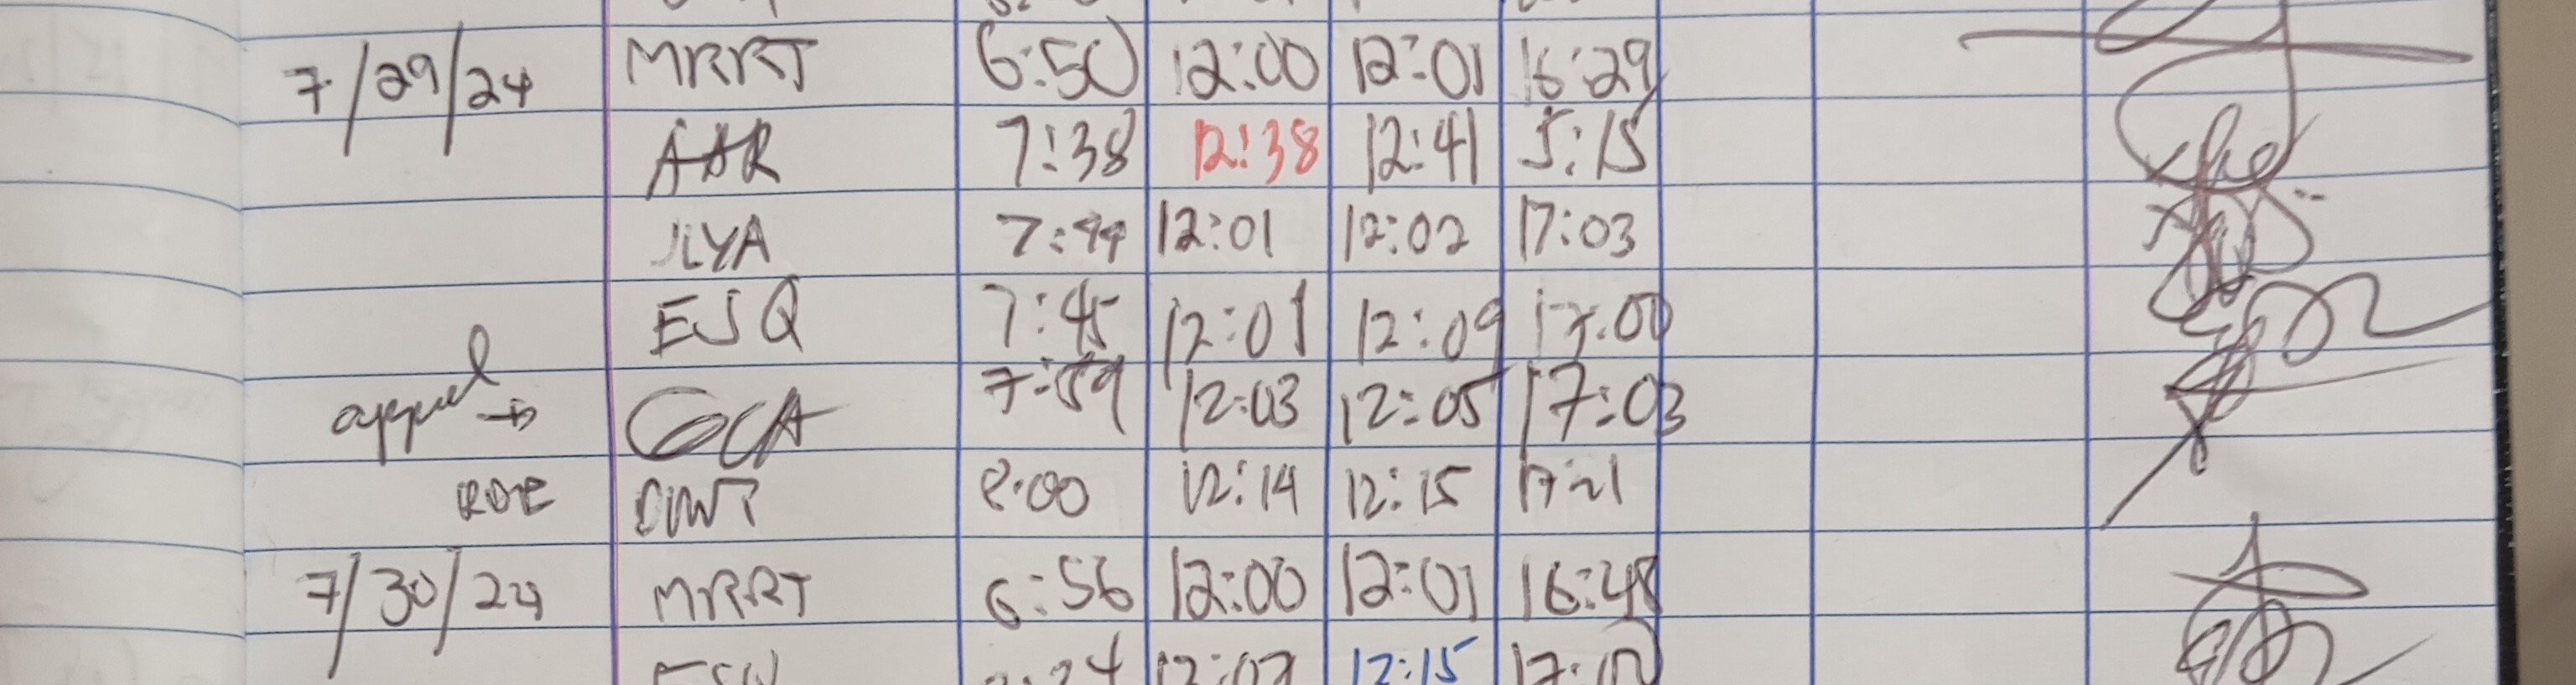 7/29/24 MRRT 6:50 12:00 12:01 16:29
AAR 7:38 12:38 12:41 5:15
JLYA 7:44 12:01 12:02 17:03
ESQ 7:45 12:01 12:09 17:00
appel → GCA 7:59 12:03 12:05 17:03
8:00 12:14 12:15 17:21
7/30/24 MRRT 6:56 12:00 12:01 16:48
12:15